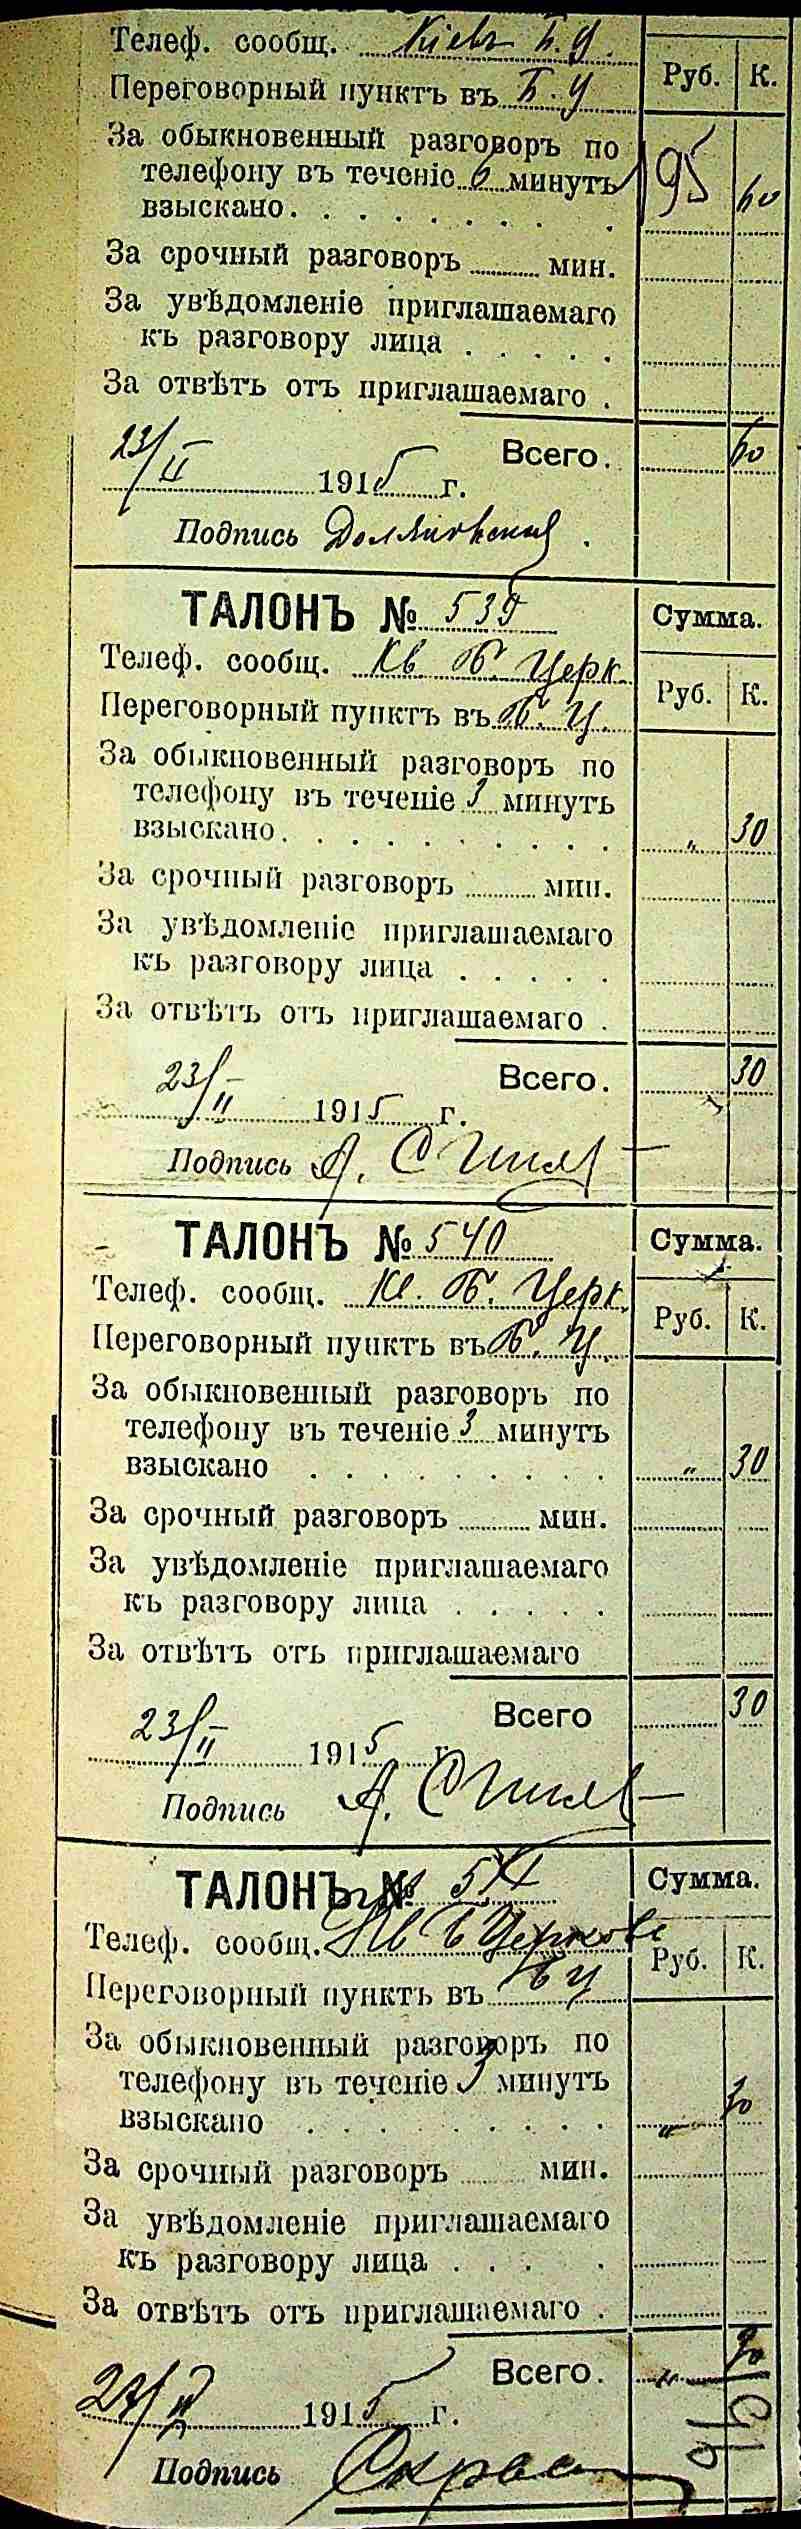 Телеф. сообщ. Кіевъ Б. Ц.
Руб. К.
Переговорный пунктъ въ Б. Ц
За обыкновенный разговоръ по
телефону въ теченіе 6 минутъ
взыскано. . . . . . . . . 60
За срочный разговоръ ...... мин.
За увѣдомленіе приглашаемаго
къ разговору лица . . . . .
За отвѣтъ отъ приглашаемаго .
Всего. 60
23/II 1915 г.
Подпись
ТАЛОНЪ № 539 Сумма.
Телеф. сообщ. Кв. Б. Церк.
Руб. К.
Переговорный пунктъ въ Б. Ц.
За обыкновенный разговоръ по
телефону въ теченіе 3 минутъ
взыскано. . . . . . . . . . „ 30
За срочный разговоръ ...... мин.
За увѣдомленіе приглашаемаго
къ разговору лица . . . . .
За отвѣтъ отъ приглашаемаго .
Всего. 30
23/II 1915 г.
Подпись А.
ТАЛОНЪ № 540 Сумма.
Телеф. сообщ. Кв. Б. Церк.
Руб. К.
Переговорный пунктъ въ Б. Ц.
За обыкновенный разговоръ по
телефону въ теченіе 3 минутъ
взыскано . . . . . . . . . „ 30
За срочный разговоръ ...... мин.
За увѣдомленіе приглашаемаго
къ разговору лица . . . . .
За отвѣтъ отъ приглашаемаго
Всего 30
23/II 1915 г.
Подпись А.
ТАЛОНЪ № Сумма.
Телеф. сообщ. Кв Б Церковь
Руб. К.
Переговорный пунктъ въ Б Ц
За обыкновенный разговоръ по
телефону въ теченіе 3 минутъ
взыскано . . . . . . . . . „ 30
За срочный разговоръ ...... мин.
За увѣдомленіе приглашаемаго
къ разговору лица . . . . .
За отвѣтъ отъ приглашаемаго .
Всего. „ 30
1915 г.
Подпись